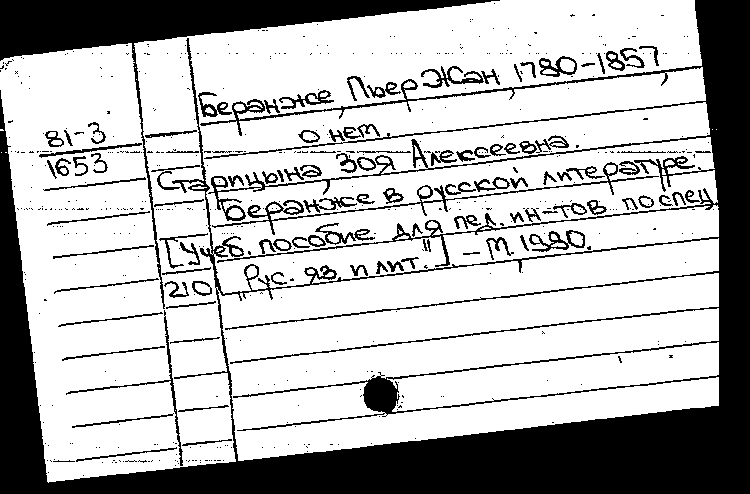 Беранже, Пьер Жан, 1780-1857,
о нем.
81-3
1653
Старицына, Зоя Алексеевна.
Беранже в русской литературе.
[Учеб. пособие для пед. ин-тов по спец.
"Рус. яз. и лит."]. - М., 1980.
210